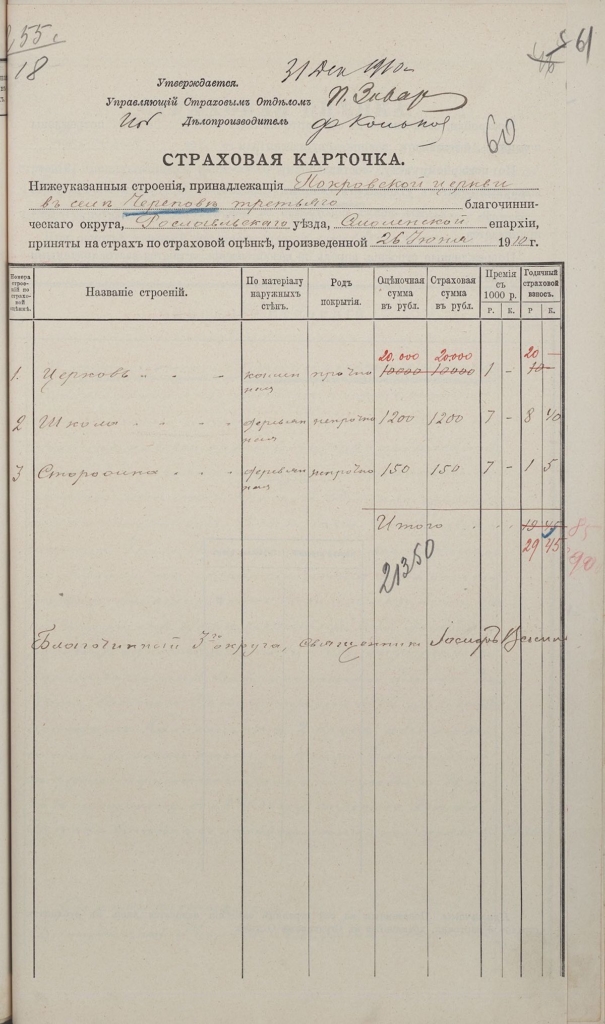 255
18
61
60
31 Дек 1910 г.
Утверждается.
Управляющій Страховымъ Отдѣломъ
Дѣлопроизводитель
СТРАХОВАЯ КАРТОЧКА.
Нижеуказанныя строенія, принадлежащія Покровской церкви
въ селѣ Череповѣ третьяго благочинни-
ческаго округа, Рославльскаго уѣзда, Смоленской епархіи,
приняты на страхъ по страховой оцѣнкѣ, произведенной 26 Іюня 1910 г.
Номера строе-ній по страхо-вой оцѣнкѣ. Названіе строеній. По матеріалу наружныхъ стѣнъ. Родъ покрытія. Оцѣночная сумма въ рубл. Страховая сумма въ рубл. Премія съ 1000 р. Годичный страховой взносъ.
Р. К. Р К.
20,000 20,000 20 —
1. Церковь „ „ „ камен ная прочно 10000 10000 1 - 10 -
2 Школа „ „ „ „ деревян ная непрочно 1200 1200 7 - 8 40
3 Сторожка „ „ „ деревян ная непрочно 150 150 7 - 1 5
Итого „ „ „ 19 45
29 45
21350
Благочинный 3го округа, священникъ